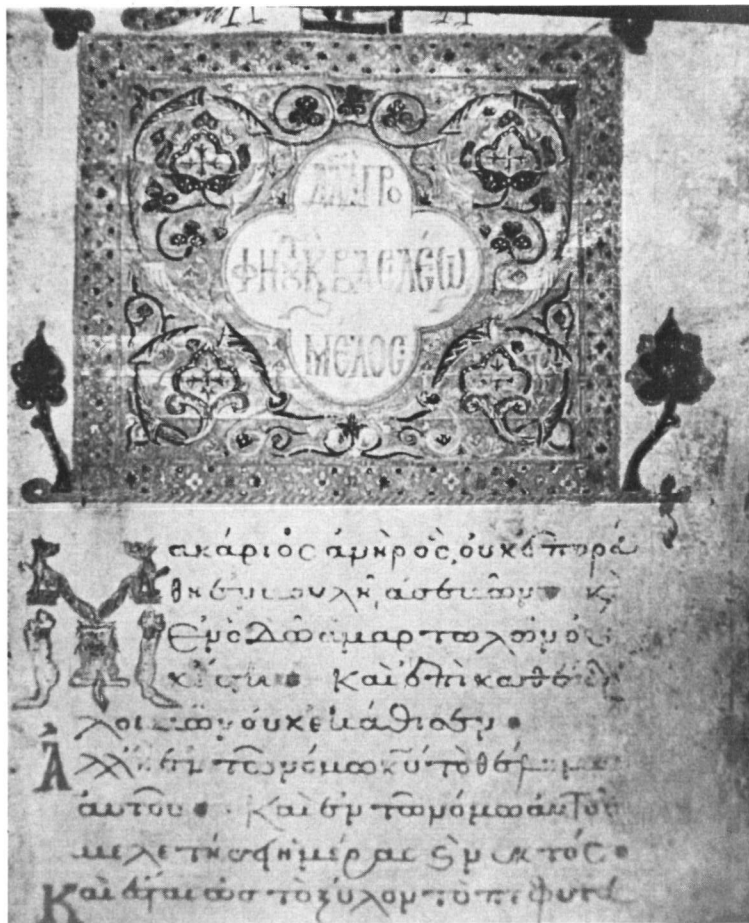 ΔΑΔ ΠΡΟ
ΦΗΤΟΥ Κ ΒΑΣΙΛΕΩ
ΜΕΛΟΣ
Μακάριος ἀνὴρ ὃς, οὐκ ἐπορεύ
θη ἐν βουλῆ ἀσεβῶν κ̀
ἐν ὁδῶ ἁμαρτωλῶν οὐ
κ ἔστη Καὶ ἐπὶ καθέδρα
λοιμῶν οὐκ ἐκάθισεν
Ἀλλ' ἢ ἐν τῶ νόμω κυ τὸ θέλημα
αὐτοῦ Καὶ ἐν τῶ νόμω αὐτοῦ
μελετήσει ἡμέρας κ̀ νυκτός
Καὶ ἔσται ὡς τὸ ξύλον τὸ πεφυτευ